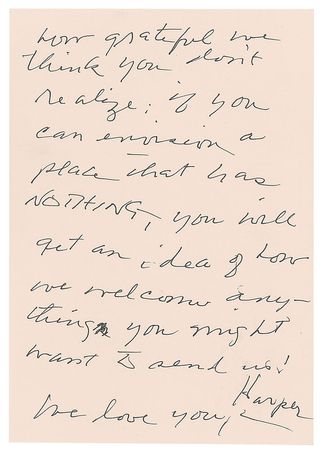 how grateful we
think you don't
realize; if you
can envision a
place that has
NOTHING, you will
get an idea of how
we welcome any-
thing you might
want to send us!
We love you,
Harper